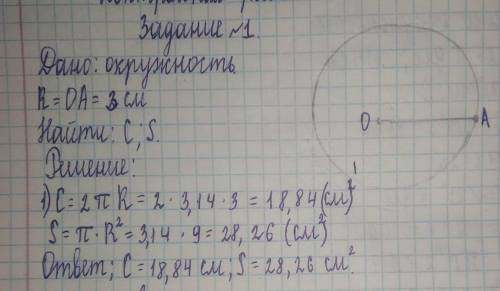 Задание №1.
Дано: окружность
R = OA = 3 см
O A
Найти: C; S.
Решение:
1) C = 2πR = 2 · 3,14 · 3 = 18,84 (см²)
S = π · R² = 3,14 · 9 = 28,26 (см²)
Ответ; C = 18,84 см; S = 28,26 см².